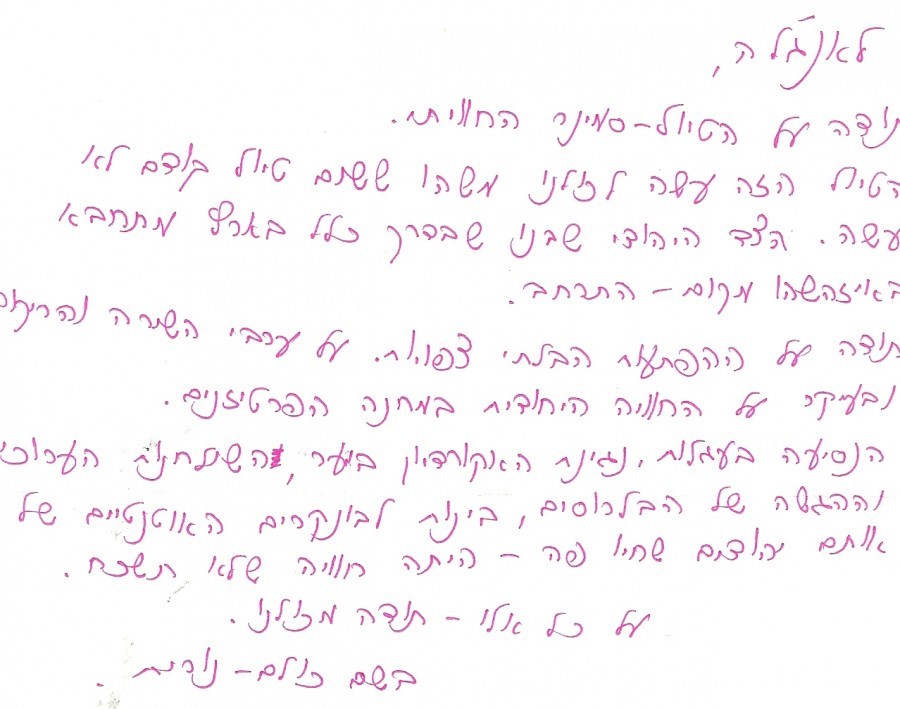 לאנג'לה,
תודה על הטיול-סמינר החוויתי.
הטיול הזה עשה לכולנו משהו ששום טיול קודם לא
עשה. הצד היהודי שבנו שבדרך כלל בארץ מתחבא
באיזהשהו מקום - התרחב.
תודה על ההפתעות הבלתי צפויות. על ערבי השירה והריקוד
ובעיקר על החוויה היחודית במחנה הפרטיזנים.
הנסיעה בעגלות, נגינת האקורדאון ביער, השולחנות הערוכים
וההגשה של הבלרוסים, בינות לבונקרים האוטנטיים של
אותם יהודים שחיו פה - היתה חוויה שלא תשכח.
על כל אלו - תודה מכולנו.
בשם כולם - נורית.